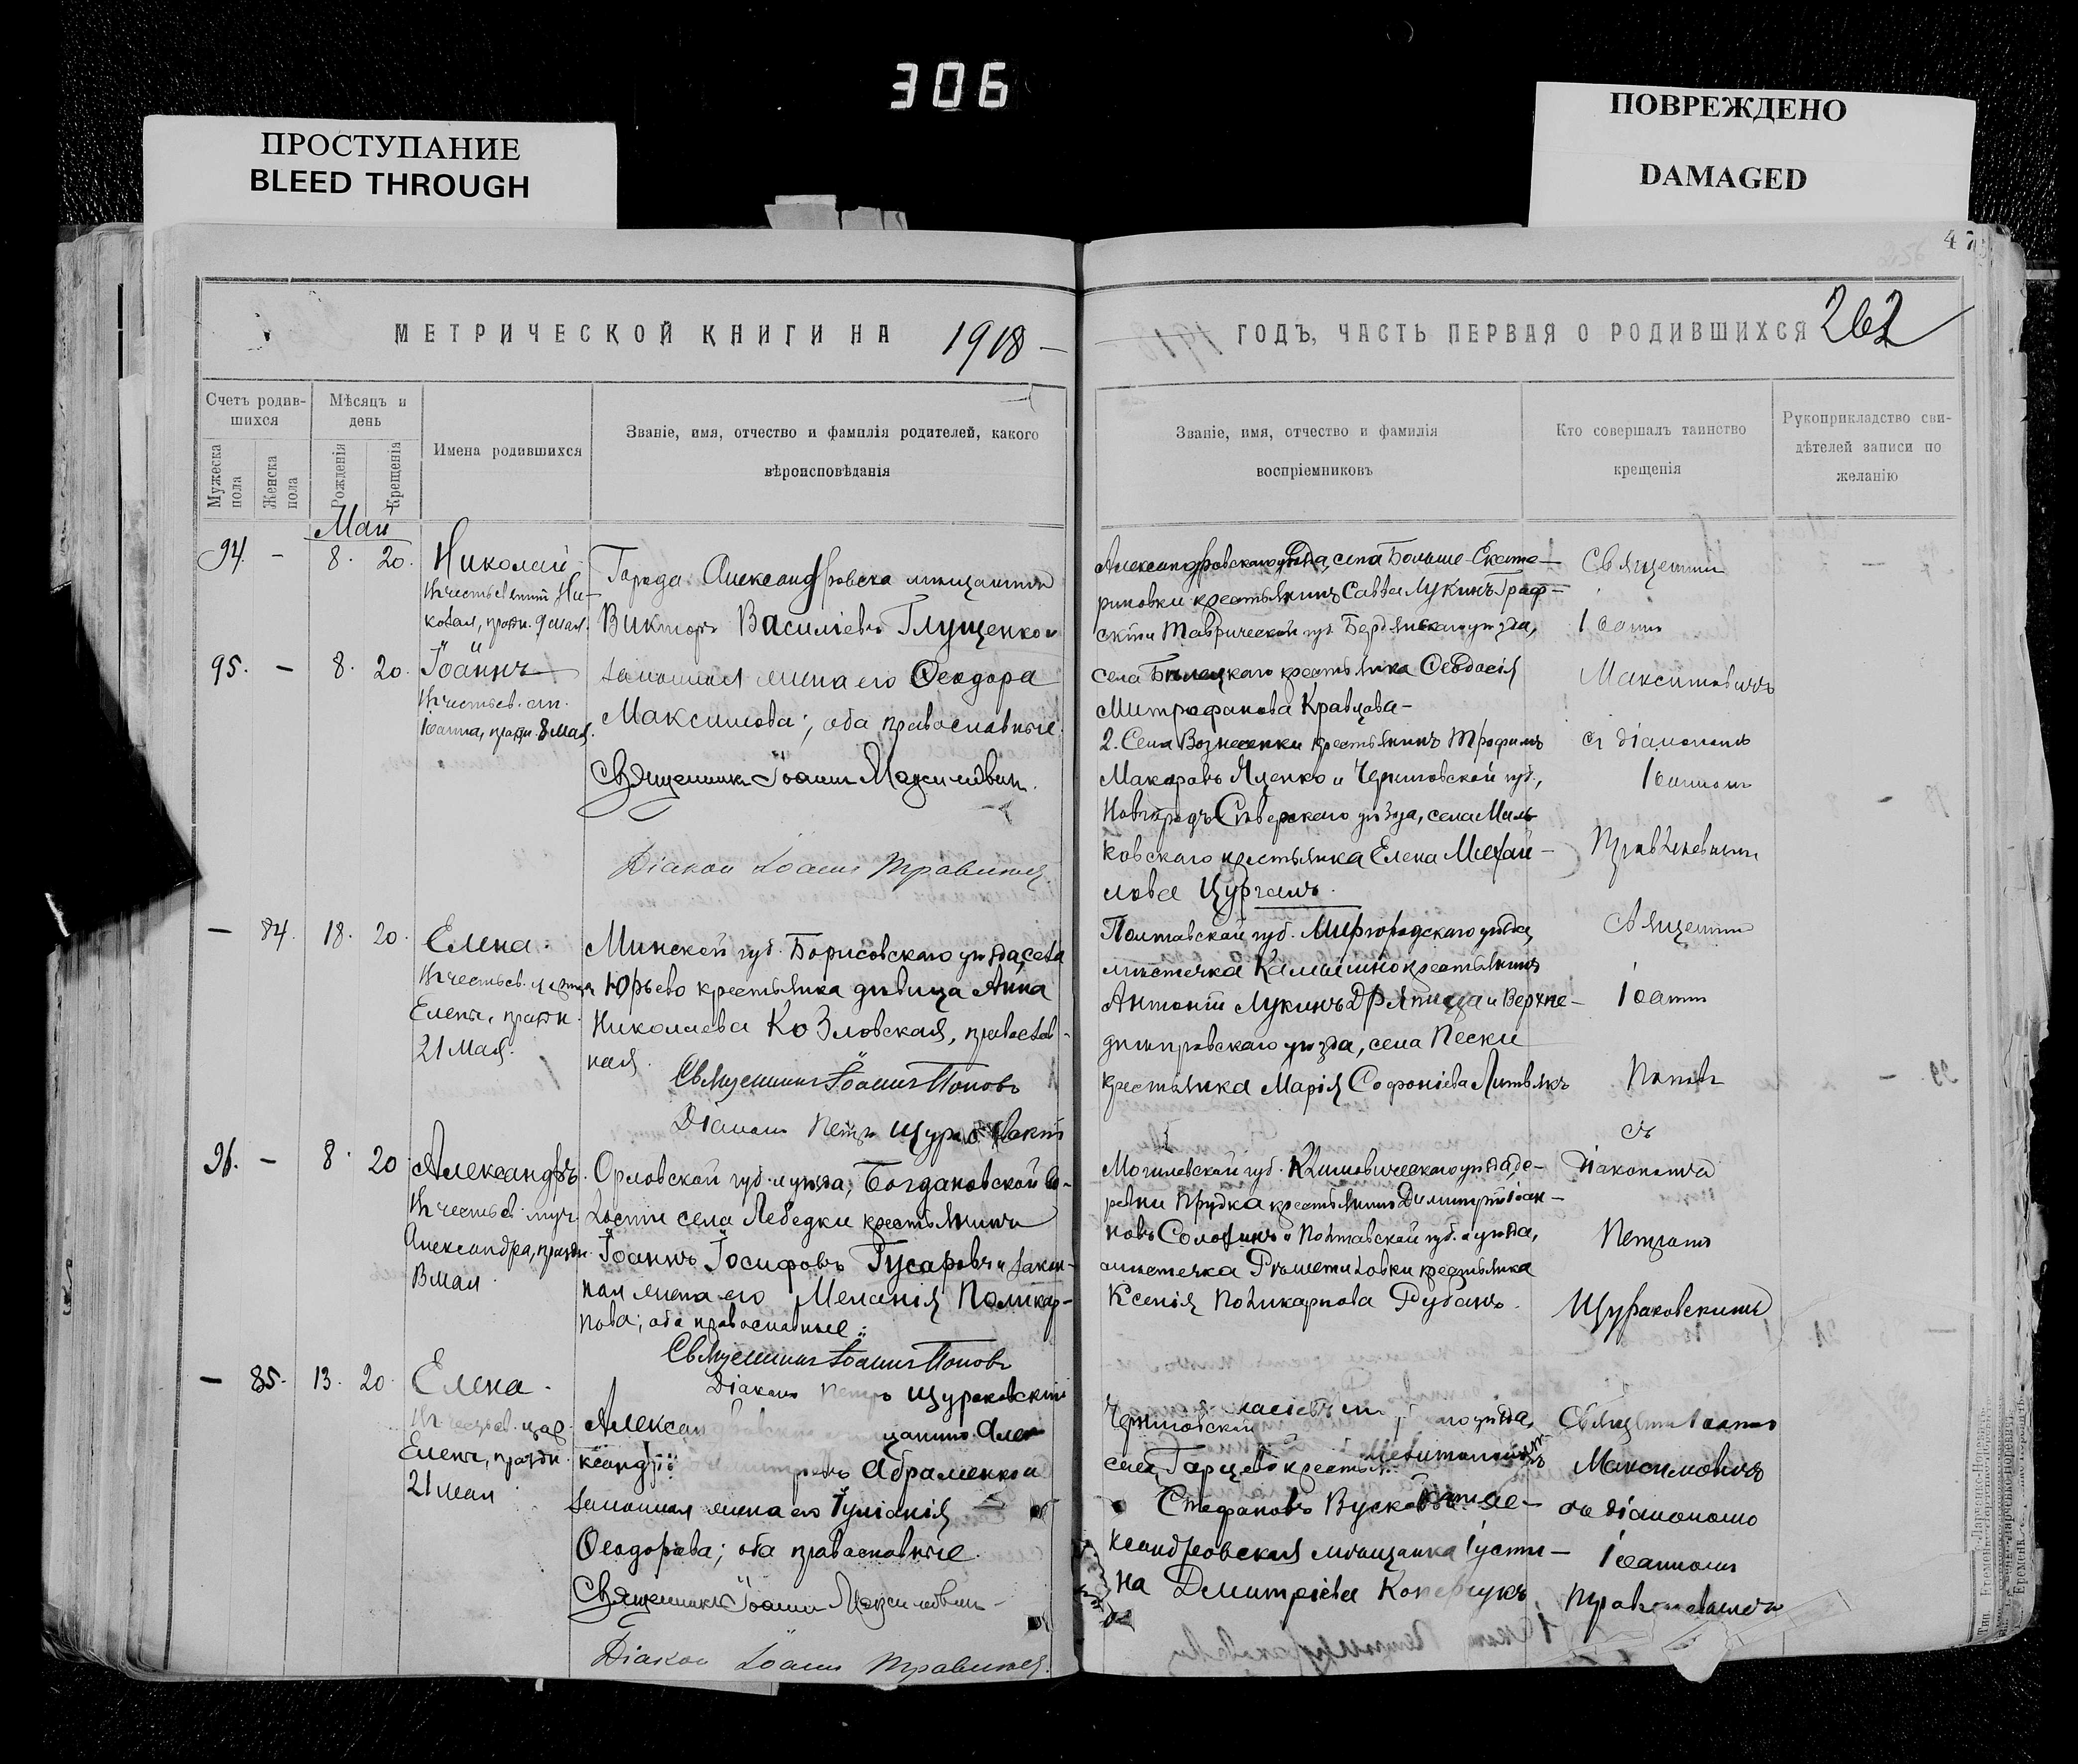 306
ПРОСТУПАНИЕ
BLEED THROUGH
ПОВРЕЖДЕНО
DAMAGED
47
256
МЕТРИЧЕСКОЙ КНИГИ НА 1918
ГОДЪ, ЧАСТЬ ПЕРВАЯ О РОДИВШИХСЯ 262
Счетъ родив-
шихся
Мѣсяцъ и
день
Мужеска
пола
Женска
пола
Рожденія
Крещенія
Имена родившихся
Званіе, имя, отчество и фамилія родителей, какого
вѣроисповѣданія
Званіе, имя, отчество и фамилія
воспріемниковъ
Кто совершалъ таинство
крещенія
Рукоприкладство сви-
дѣтелей записи по
желанію
Май
94. - 8. 20. Николай
Ни-
колая, праздн. 9 мая.
95. - 8. 20. Іоаннъ
Іоанна, праздн. 8 мая.
Города Александровска мѣщанинъ
Викторъ Василіевъ Глущенко и
законная жена его Ѳеодора
Максимова; оба православные.
Священникъ Іоаннъ Максимовичъ.
Діаконъ Іоаннъ
Александровскаго уѣзда, села Больше-Екате-
риновки крестьянинъ Савва Лукинъ Граф-
скій и Таврической губ. Бердянскаго уѣзда,
села крестьянка Ѳеодосія
Митрофанова Кравцова-
2. Села Вознесенки крестьянинъ Трофимъ
Макаровъ Яценко и Черниговской губ.,
Новгородъ Сѣверскаго уѣзда, села
ковскаго крестьянка Елена Михай-
лова Цурганъ.
Священникъ
Іоаннъ
Максимовичъ
съ діакономъ
Іоанномъ
— 84. 18. 20. Елена.
Елены, праздн.
21 Мая.
Минской губ. Борисовскаго уѣзда, села
Юрьево крестьянка дѣвица Анна
Николаева Козловская, православ-
ная.
Священникъ Іоаннъ Поповъ
Діаконъ Петръ Щураковскій
Полтавской губ. Миргородскаго уѣзда,
мѣстечка Камышно крестьянинъ
Антоній Лукинъ Дряпица и Верхне-
днѣпровскаго уѣзда, села Пески
крестьянка Марія Софоніева Литвякъ
Священникъ
Іоаннъ
Поповъ
съ
діакономъ
Петромъ
Щураковскимъ
96. - 8. 20 Александръ.
Александра, праздн.
Мая.
Орловской губ. и уѣзда, Богдановской во-
лости села Лебедки крестьянинъ
Іоаннъ Іосифовъ Гусаровъ и закон-
ная жена его Меланія Поликар-
пова; оба православные.
Священникъ Іоаннъ Поповъ
Діаконъ Петръ Щураковскій
Могилевской губ. Климовическаго уѣзда, де-
ревни Прудка крестьянинъ Димитрій Іоан-
новъ и Полтавской губ. и уѣзда,
мѣстечка Рѣшетиловки крестьянка
Ксенія Поликарпова Рубанъ.
— 85. 13. 20 Елена.
Елены, праздн.
21 мая
Алексан
ксандръ Абраменко и
законная жена его Іуліанія
Ѳеодорова; оба православные.
Священникъ Іоаннъ Максимовичъ
Діаконъ Іоаннъ
Черниговской уѣзда,
села Гарцево
Стефановъ
ксандровская мѣщанка Іусти-
на Димитріева
Священникъ Іоаннъ
Максимовичъ
съ діакономъ
Іоанномъ